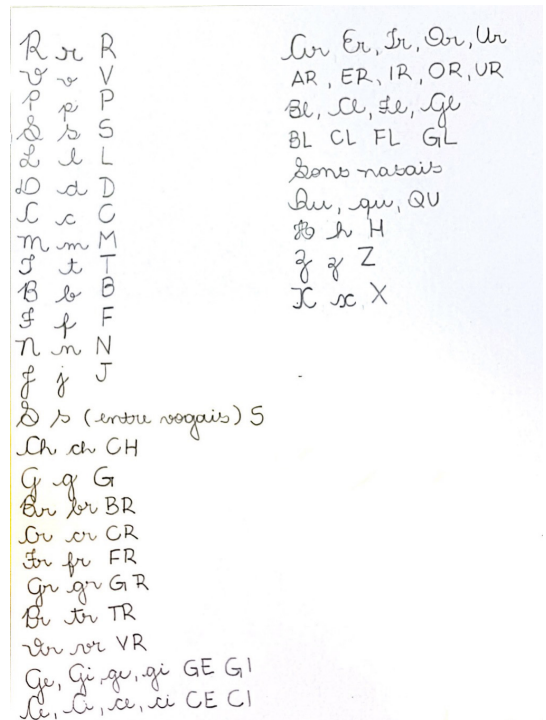 R r R
V v V
P p P
S s S
L l L
D d D
C c C
M m M
T t T
B b B
F f F
N n N
J j J
S s (entre vogais) S
Ch ch CH
G g G
Br br BR
Cr cr CR
Fr fr FR
Gr gr GR
Tr tr TR
Vr vr VR
Ge, Gi, ge, gi GE GI
Ce, Ci, ce, ci CE CI
Ar Er, Ir, Or, Ur
AR, ER, IR, OR, UR
Bl, Cl, Fl, Gl
BL CL FL GL
Sons nasais
Qu, qu, QU
H h H
Z z Z
X x X